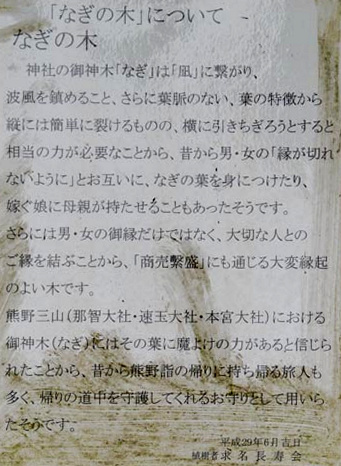 「なぎの木」について
なぎの木
神社の御神木「なぎ」は「凪」に繋がり、
波風を鎮めること、さらに葉脈のない、葉の特徴から
縦には簡単に裂けるものの、横に引きちぎろうとすると
相当の力が必要なことから、昔から男・女の「縁が切れ
ないように」とお互いに、なぎの葉を身につけたり、
嫁ぐ娘に母親が持たせることもあったそうです。
さらには男・女の御縁だけではなく、大切な人との
ご縁を結ぶことから、「商売繋盛」にも通じる大変縁起
のよい木です。
熊野三山(那智大社・速玉大社・本宮大社)における
御神木(なぎ)にはその葉に魔よけの力があると信じら
れたことから、昔から熊野詣の帰りに持ち帰る旅人も
多く、帰りの道中を守護してくれるお守りとして用いら
れたそうです。
平成29年6月吉日
植樹者 求名長寿会